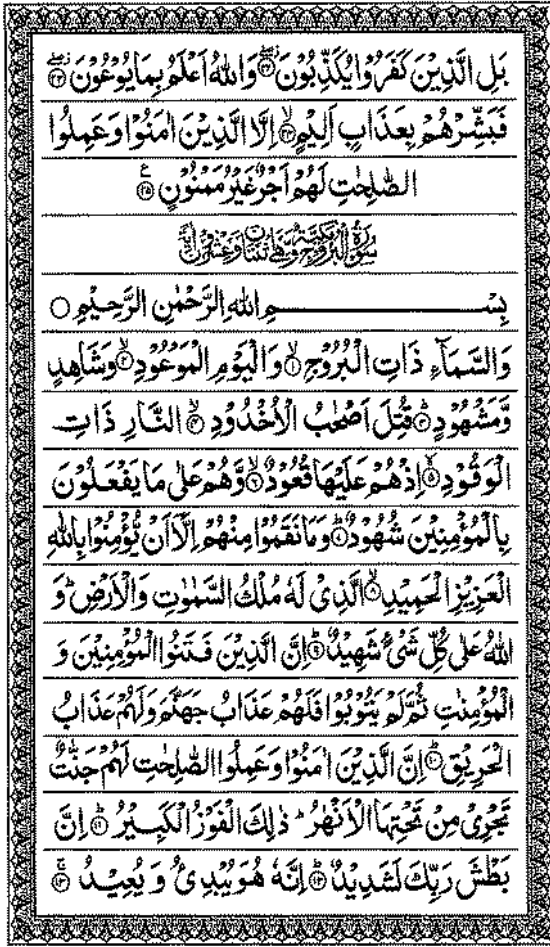 بَلِ الَّذِيْنَ كَفَرُوْا يُكَذِّبُوْنَ ﴿٢٢﴾ وَاللّٰهُ اَعْلَمُ بِمَا يُوْعُوْنَ ﴿٢٣﴾
فَبَشِّرْهُمْ بِعَذَابٍ اَلِيْمٍ ﴿٢٤﴾ اِلَّا الَّذِيْنَ اٰمَنُوْا وَعَمِلُوا
الصّٰلِحٰتِ لَهُمْ اَجْرٌ غَيْرُ مَمْنُوْنٍ ﴿٢٥﴾
سُوْرَةُ الْبُرُوْجِ مَكِّيَّةٌ وَّهِيَ اثْنَتَانِ وَعِشْرُوْنَ اٰيَةً
بِسْمِ اللّٰهِ الرَّحْمٰنِ الرَّحِيْمِ ○
وَالسَّمَآءِ ذَاتِ الْبُرُوْجِ ﴿١﴾ وَالْيَوْمِ الْمَوْعُوْدِ ﴿٢﴾ وَشَاهِدٍ
وَّمَشْهُوْدٍ ﴿٣﴾ قُتِلَ اَصْحٰبُ الْاُخْدُوْدِ ﴿٤﴾ النَّارِ ذَاتِ
الْوَقُوْدِ ﴿٥﴾ اِذْ هُمْ عَلَيْهَا قُعُوْدٌ ﴿٦﴾ وَّهُمْ عَلٰى مَا يَفْعَلُوْنَ
بِالْمُؤْمِنِيْنَ شُهُوْدٌ ﴿٧﴾ وَمَا نَقَمُوْا مِنْهُمْ اِلَّاۤ اَنْ يُّؤْمِنُوْا بِاللّٰهِ
الْعَزِيْزِ الْحَمِيْدِ ﴿٨﴾ الَّذِيْ لَهٗ مُلْكُ السَّمٰوٰتِ وَالْاَرْضِ ؕ وَ
اللّٰهُ عَلٰى كُلِّ شَيْءٍ شَهِيْدٌ ﴿٩﴾ اِنَّ الَّذِيْنَ فَتَنُوا الْمُؤْمِنِيْنَ وَ
الْمُؤْمِنٰتِ ثُمَّ لَمْ يَتُوْبُوْا فَلَهُمْ عَذَابُ جَهَنَّمَ وَلَهُمْ عَذَابُ
الْحَرِيْقِ ﴿١٠﴾ اِنَّ الَّذِيْنَ اٰمَنُوْا وَعَمِلُوا الصّٰلِحٰتِ لَهُمْ جَنّٰتٌ
تَجْرِيْ مِنْ تَحْتِهَا الْاَنْهٰرُ ؕ ذٰلِكَ الْفَوْزُ الْكَبِيْرُ ﴿١١﴾ اِنَّ
بَطْشَ رَبِّكَ لَشَدِيْدٌ ﴿١٢﴾ اِنَّهٗ هُوَ يُبْدِئُ وَيُعِيْدُ ﴿١٣﴾